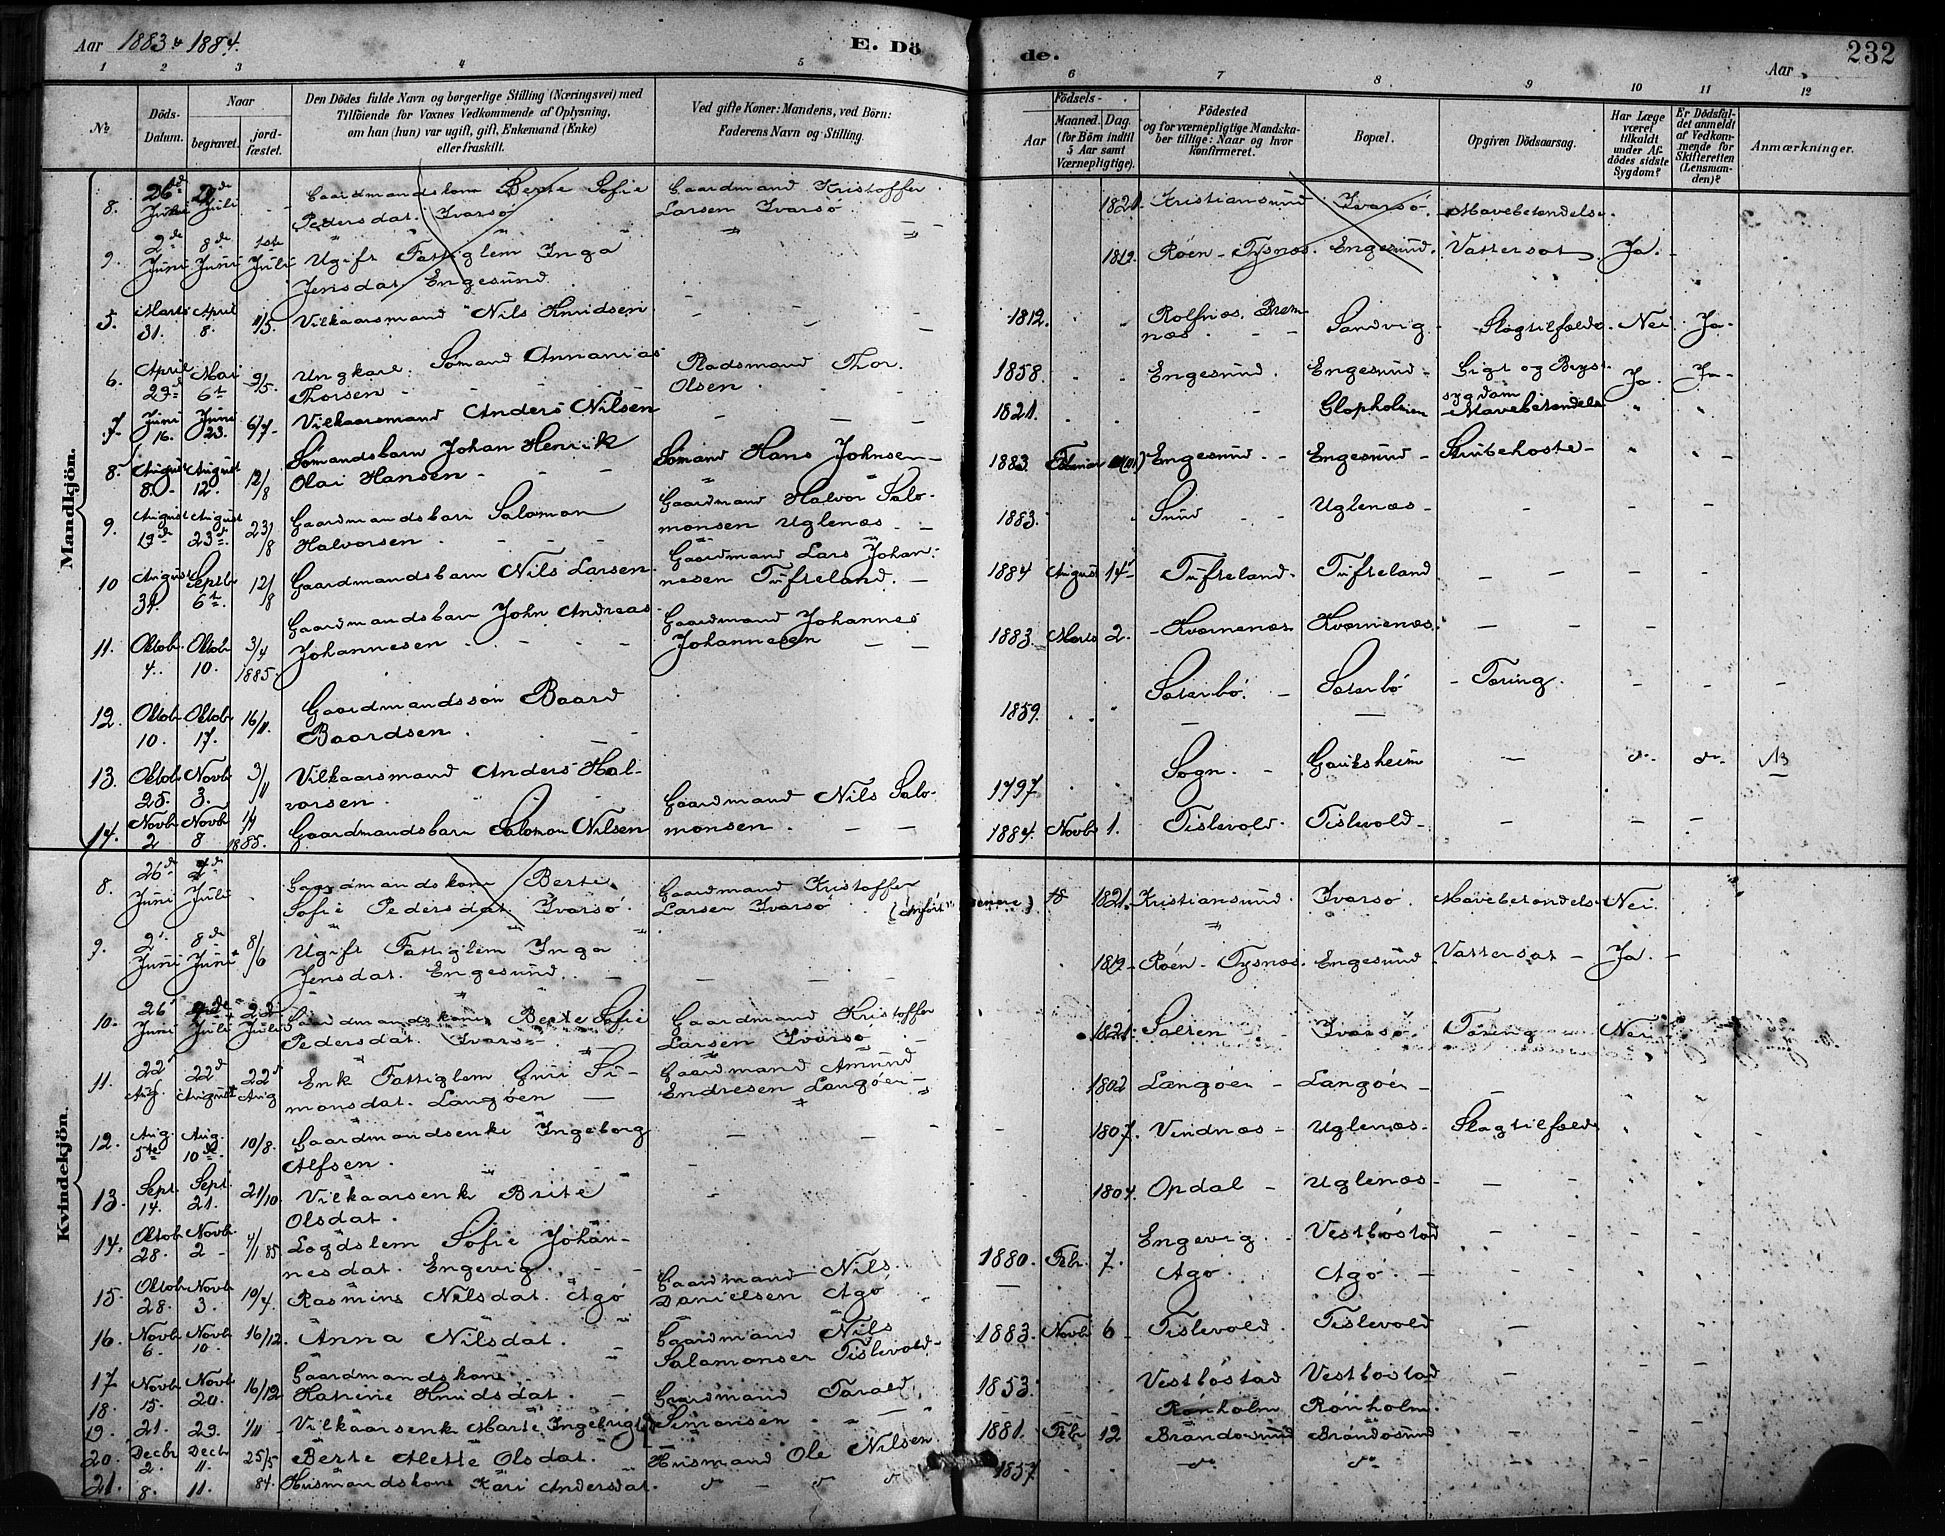 Aar 1883 & 1884.
E. Dö
de.
Aar
232
1 2 3 4 5 6 7 8 9 10 11 12
No
Döds-Datum.
Naar
begravet.
jord-fæstet.
Den Dödes fulde Navn og borgerlige Stilling (Næringsvei) med
Tilföiende for Voxnes Vedkommende af Oplysning,
om han (hun) var ugift, gift, Enkemand (Enke)
eller fraskilt.
Ved gifte Koner: Mandens, ved Börn:
Faderens Navn og Stilling.
Födsels-
Aar
Maaned. Dag.
(for Börn indtil
5 Aar samt
Værnepligtige).
Födested
og for værnepligtige Mandska-
ber tillige: Naar og hvor
konfirmeret.
Bopæl.
Opgiven Dödsaarsag.
Har Læge
været
tilkaldt
under Af-
dödes sidste
Sygdom?
Er Dödsfal-
det anmeldt
af Vedkom-
mende for
Skifteretten
(Lensman-
den)?
Anmærkninger.
Mandkjön.
8. 26de Juni Juli Gaardmandskone Berte Sofie Gaardmand Kristoffer 1821. Kristiansund Ivarsö. Mavebetændelse.
Pedersdat. Ivarsö Larsen Ivarsö
9. 2de Juni 8de Juni 1ste Juli Ugift Fattiglem Inga 1819. Röen - Tysnæs. Engesund. Vattersot. Ja.
Jensdat. Engesund
5. Marts 31. April 8. 11/5. Vilkaarsmand Nils Knudsen 1812. Rolfsnæs, Brem-
næs. Sandvig Slagtilfælde. Nei Ja.
6. April 29de Mai 6te 9/5. Ungkarl. Sømand Annanias Pladsmand Thor 1858. Engesund. Engesund Gigt og Bryst-
Thorsen Olsen. sygdom Ja. Ja.
7. Juni 16. Juni 23. 6/7. Vilkaarsmand Anders Nilsen 1821. Glopholmen Mavebetændelse
8. August 8. August 12. 12/8 Sömandsbarn Johan Henrik Sömand Hans Johnsen 1883. Februar Engesund Engesund Strubehoste
Olai Hansen
9. August 19de August 23de. 23/8 Gaardmandsbarn Salomon Gaardmand Halvor Salo- 1883. Sund Uglenæs
Halvorsen monsen Uglenæs
10 August 31. Septbr 6te. 12/8 Gaardmandsbarn Nils Larsen. Gaardmand Lars Johan- 1884 August 14 Tufteland. Tufteland
nesen Tufteland.
11. Oktob. 4. Oktob. 10. 3/4 1885. Gaardmandsbarn John Andreas Gaardmand Johannes 1883. Marts 2. Kvernenæs Kvernenæs.
Johannesen Johannesen
12. Oktob. 10. Oktob. 17. 16/11. Gaardmandssön Baard 1859. Sæterbö. Sæterbö Tæring.
Baardsen.
13. Oktob. 25. Novb. 3. 3/11 Vilkaarsmand Anders Hal- 1797. Sogn. Gauksheim
vorsen.
14. Novb. 2 Novb. 8 1885. Gaardmandsbarn Salomon Nilsen Gaardmand Nils Salo- 1884. Novb. 1. Tislevold. Tislevold
monsen.
Kvindekjön.
8. 26de Juni Juli Gaardmandskone Berte Gaardmand Kristoffer 1821. Kristiansund. Ivarsö. Mavebetændelse Nei
Sofie Pedersdat. Ivarsö. Larsen Ivarsö
9. 2' Juni 8de Juni 8/6 Ugift Fattiglem Inga 1819 Röen - Tysnæs. Engesund Vattersot Ja.
Jensdat. Engesund.
10. 26' Juni Juli Juli Gaardmandskone Berte Sofie Gaardmand Kristoffer 1821. Ivarsö Tæring Nei
Pedersdat. Ivarsö Larsen Ivarsö
11. 22' Aug. 22de August 22de Aug Enk. Fattiglem Guri Si- Gaardmand Amund 1802 Langöen Langöen
monsdat. Langöen Endresen Langöen
12. Aug. 5te Aug. 10de. 10/8. Gaardmandsenke Ingeborg 1807. Vindnæs Uglenæs. Slagtilfælde
Alfsen.
13. Sept. 14. Sept. 21. 21/10. Vilkaarsenk Brite 1804. Opdal Uglenæs
Olsdat.
14. Oktob. 28. Novb. 2 4/1 85 Lægdslem Sofie Johan- Engevig. Vestbostad
nesdat. Engevig.
15. Oktob. 28. Novb. 3. 10/4. Rasmine Nilsdat. Agö Gaardmand Nils 1880. Febr. 7. Agö. Agö.
Danielsen Agö
16. Novb. 6. Novb. 10. 16/12. Anna Nilsdat. Gaardmand Nils 1883. Novb. 6 Tislevold. Tislevold
Salamonsen Tislevold
17 Novb. 15. Novb. 20. 16/12 Gaardmandskone 1853. Vestbostad Vestbostad
18. Katrine Knudsdat. Gaardmand Tarald Rönholm Rönholm.
19. 21. 29. Vilkaarsenk Marte Ingebrigtsd Simonsen
20. Decbr 2. Decbr 11. 25/5 Berte Mette Olsdat. Husmand Ole Nilsen 1881. Febr 12 Brandösund Brandösund
21. 8. 11. 84. Husmandskone Kari Andersdat. 1857.